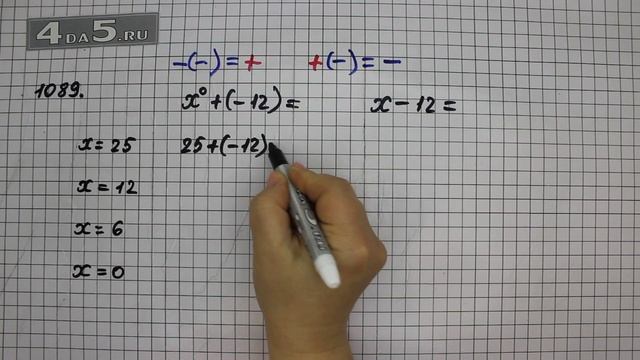 4 DA 5.RU
-(-) = + +(-) = -
1089. x⁰ + (-12) = x - 12 =
x = 25 25 + (-12)
x = 12
x = 6
x = 0